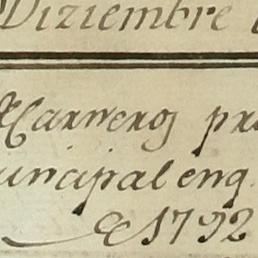 Diziembre
Carneros pr
uncipal enq.
de 1792